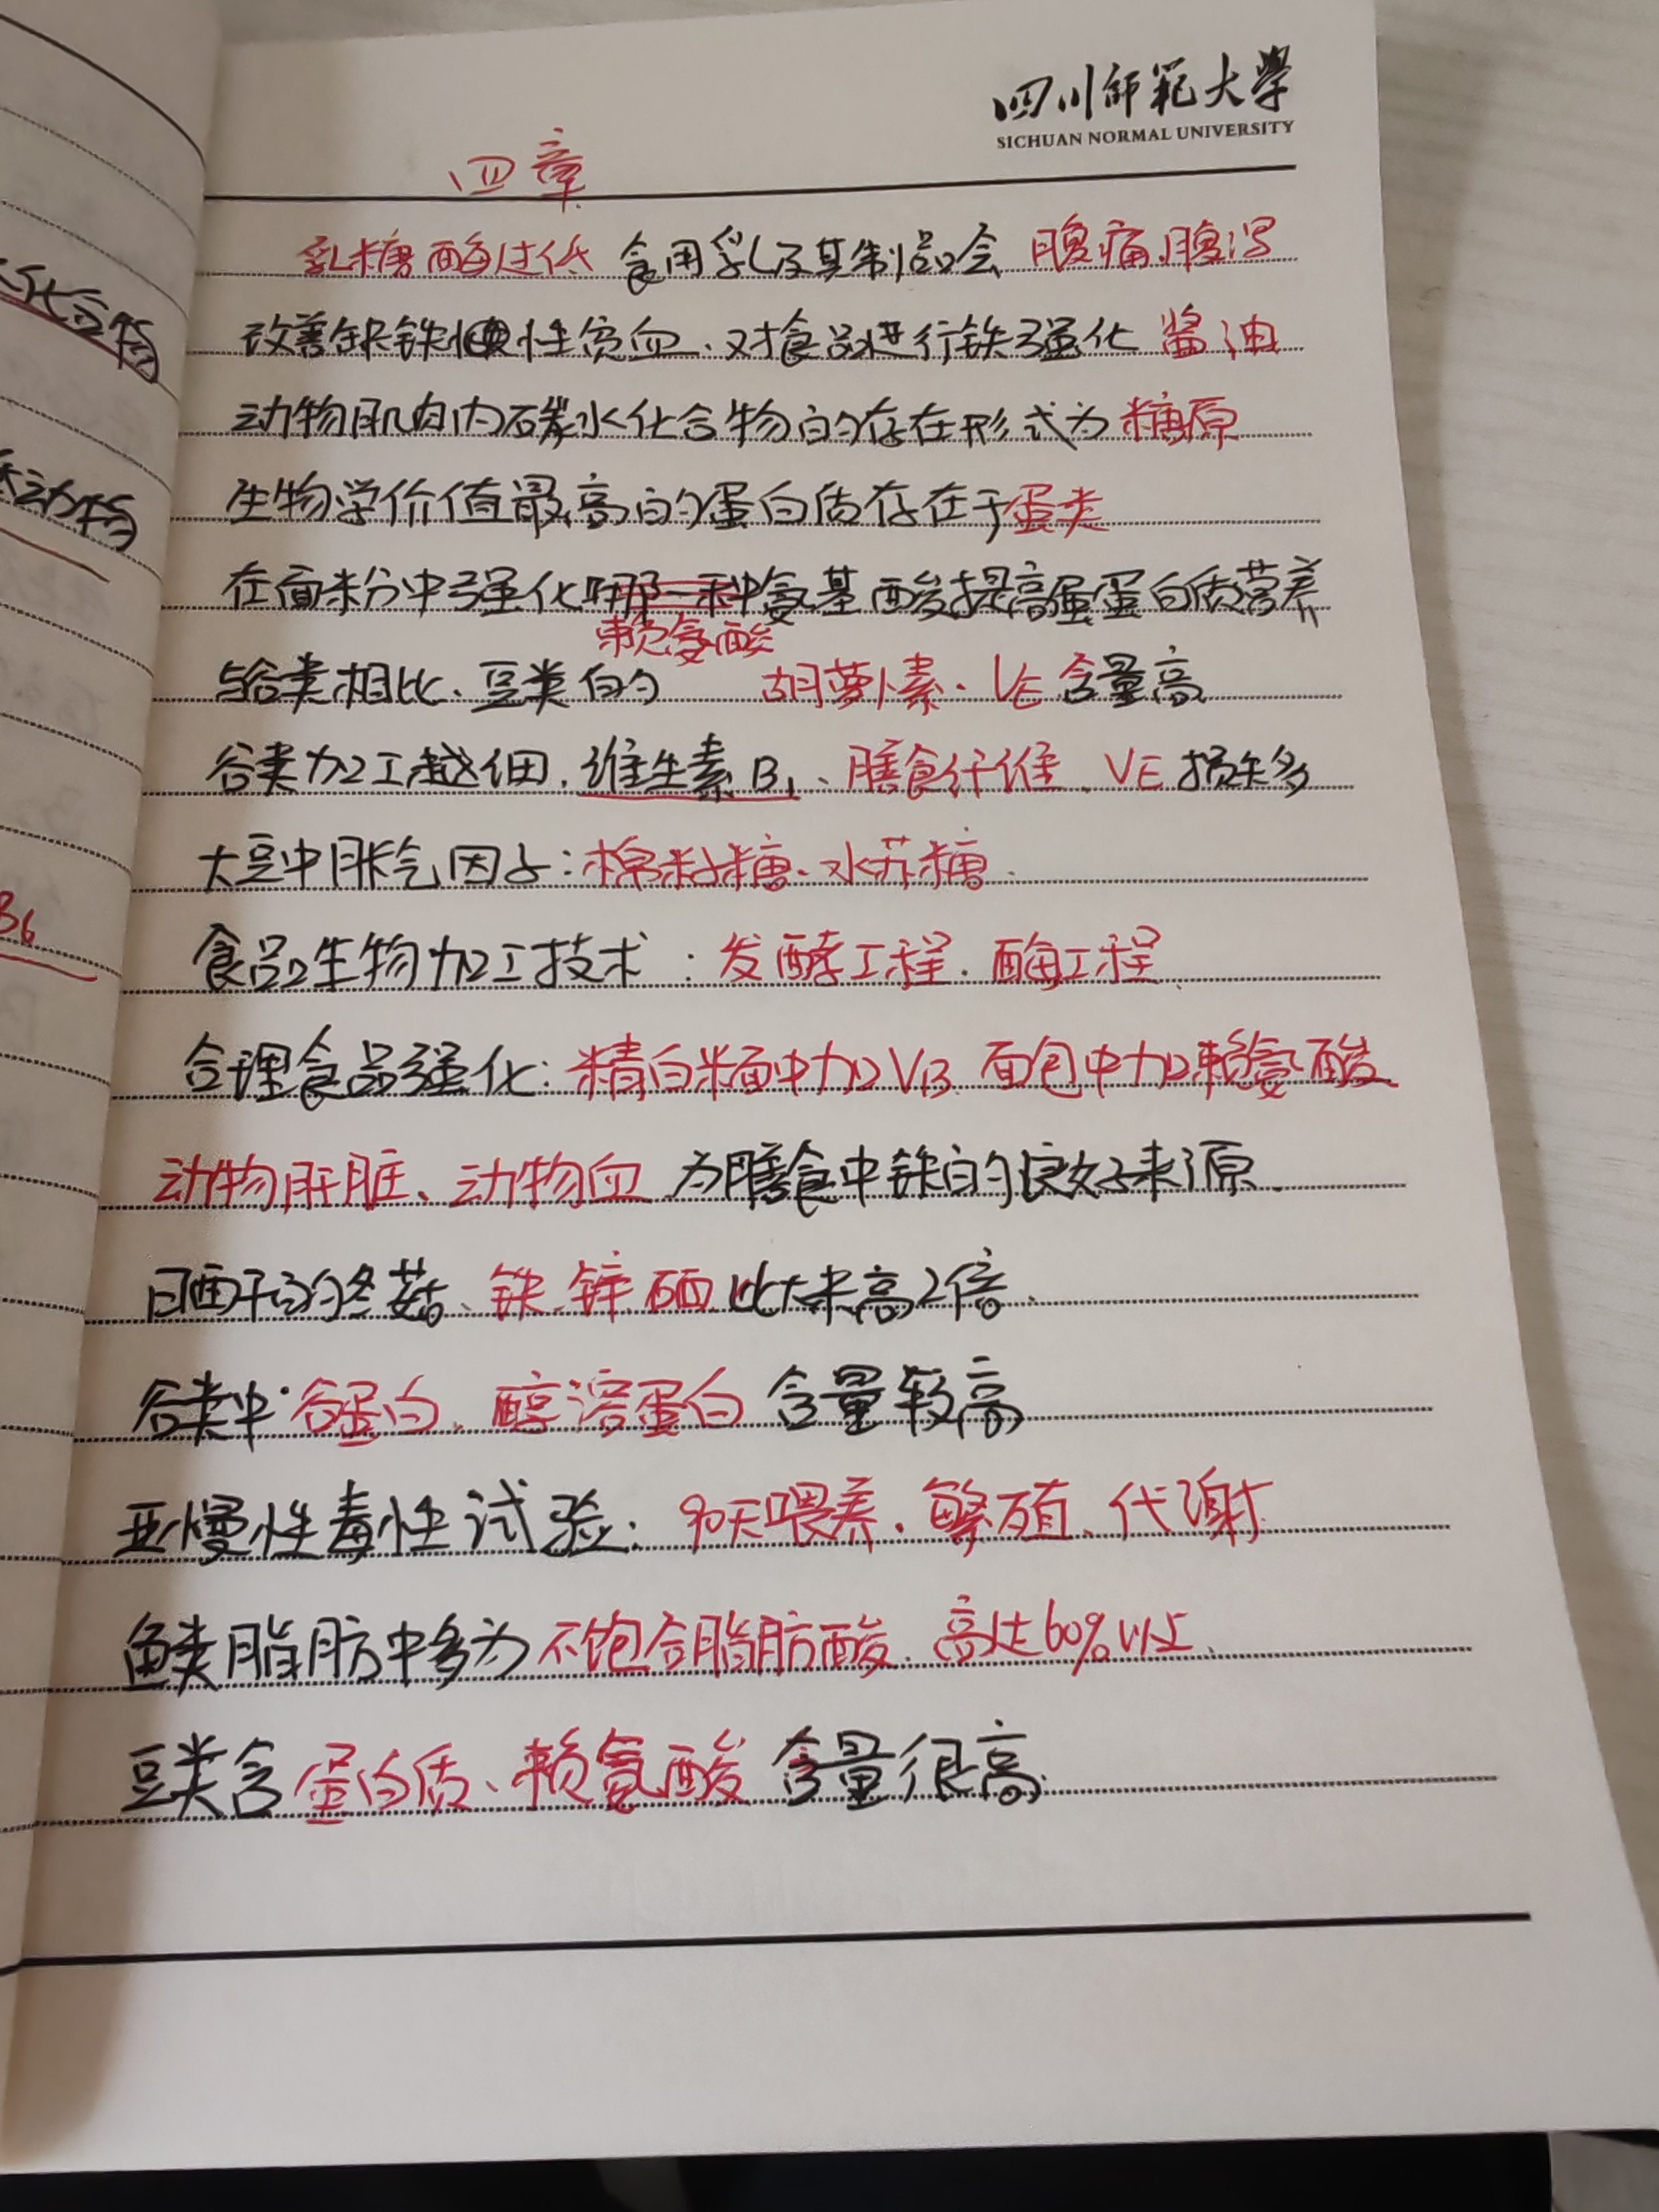 四川师范大学
SICHUAN NORMAL UNIVERSITY
四章
乳糖酶过低 食用乳及其制品会 腹痛、腹泻
改善缺铁性贫血、对食品进行铁强化 酱油
动物肌肉内碳水化合物的存在形式为 糖原
生物学价值最高的蛋白质存在于蛋类
在面粉中强化哪一种氨基酸提高蛋白质营养
赖氨酸
与谷类相比、豆类的 胡萝卜素、VE 含量高
谷类加工越细,维生素B₁、膳食纤维、VE 损失多
大豆中胀气因子:棉籽糖、水苏糖
食品生物加工技术:发酵工程、酶工程
合理食品强化:精白米面中加VB 面包中加赖氨酸
动物肝脏、动物血 为膳食中铁的良好来源
日晒干的冬菇、铁、锌、硒 比大米高2倍
谷类中 谷蛋白、醇溶蛋白 含量较高
亚慢性毒性试验:90天喂养、繁殖、代谢
鱼类脂肪中多为 不饱合脂肪酸、高达60%以上
豆类含 蛋白质、赖氨酸 含量很高
化合物
动物
B6